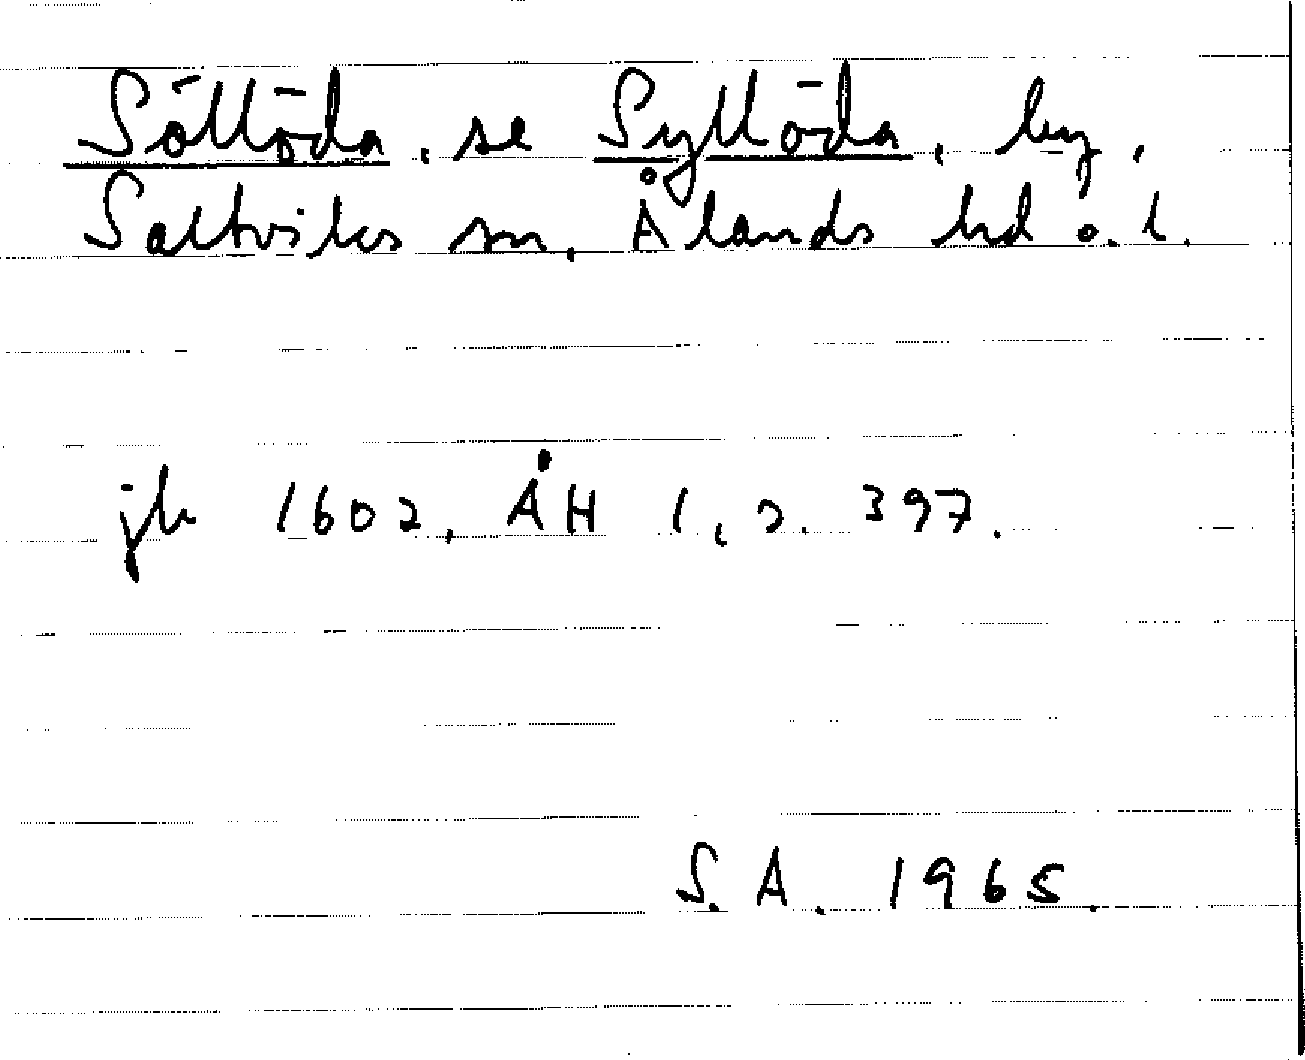 Söllöda, se Syllöda, by,
Saltviks sn, Ålands hd o. l.
jb 1602, ÅH 1, s. 397.
S. A. 1965.